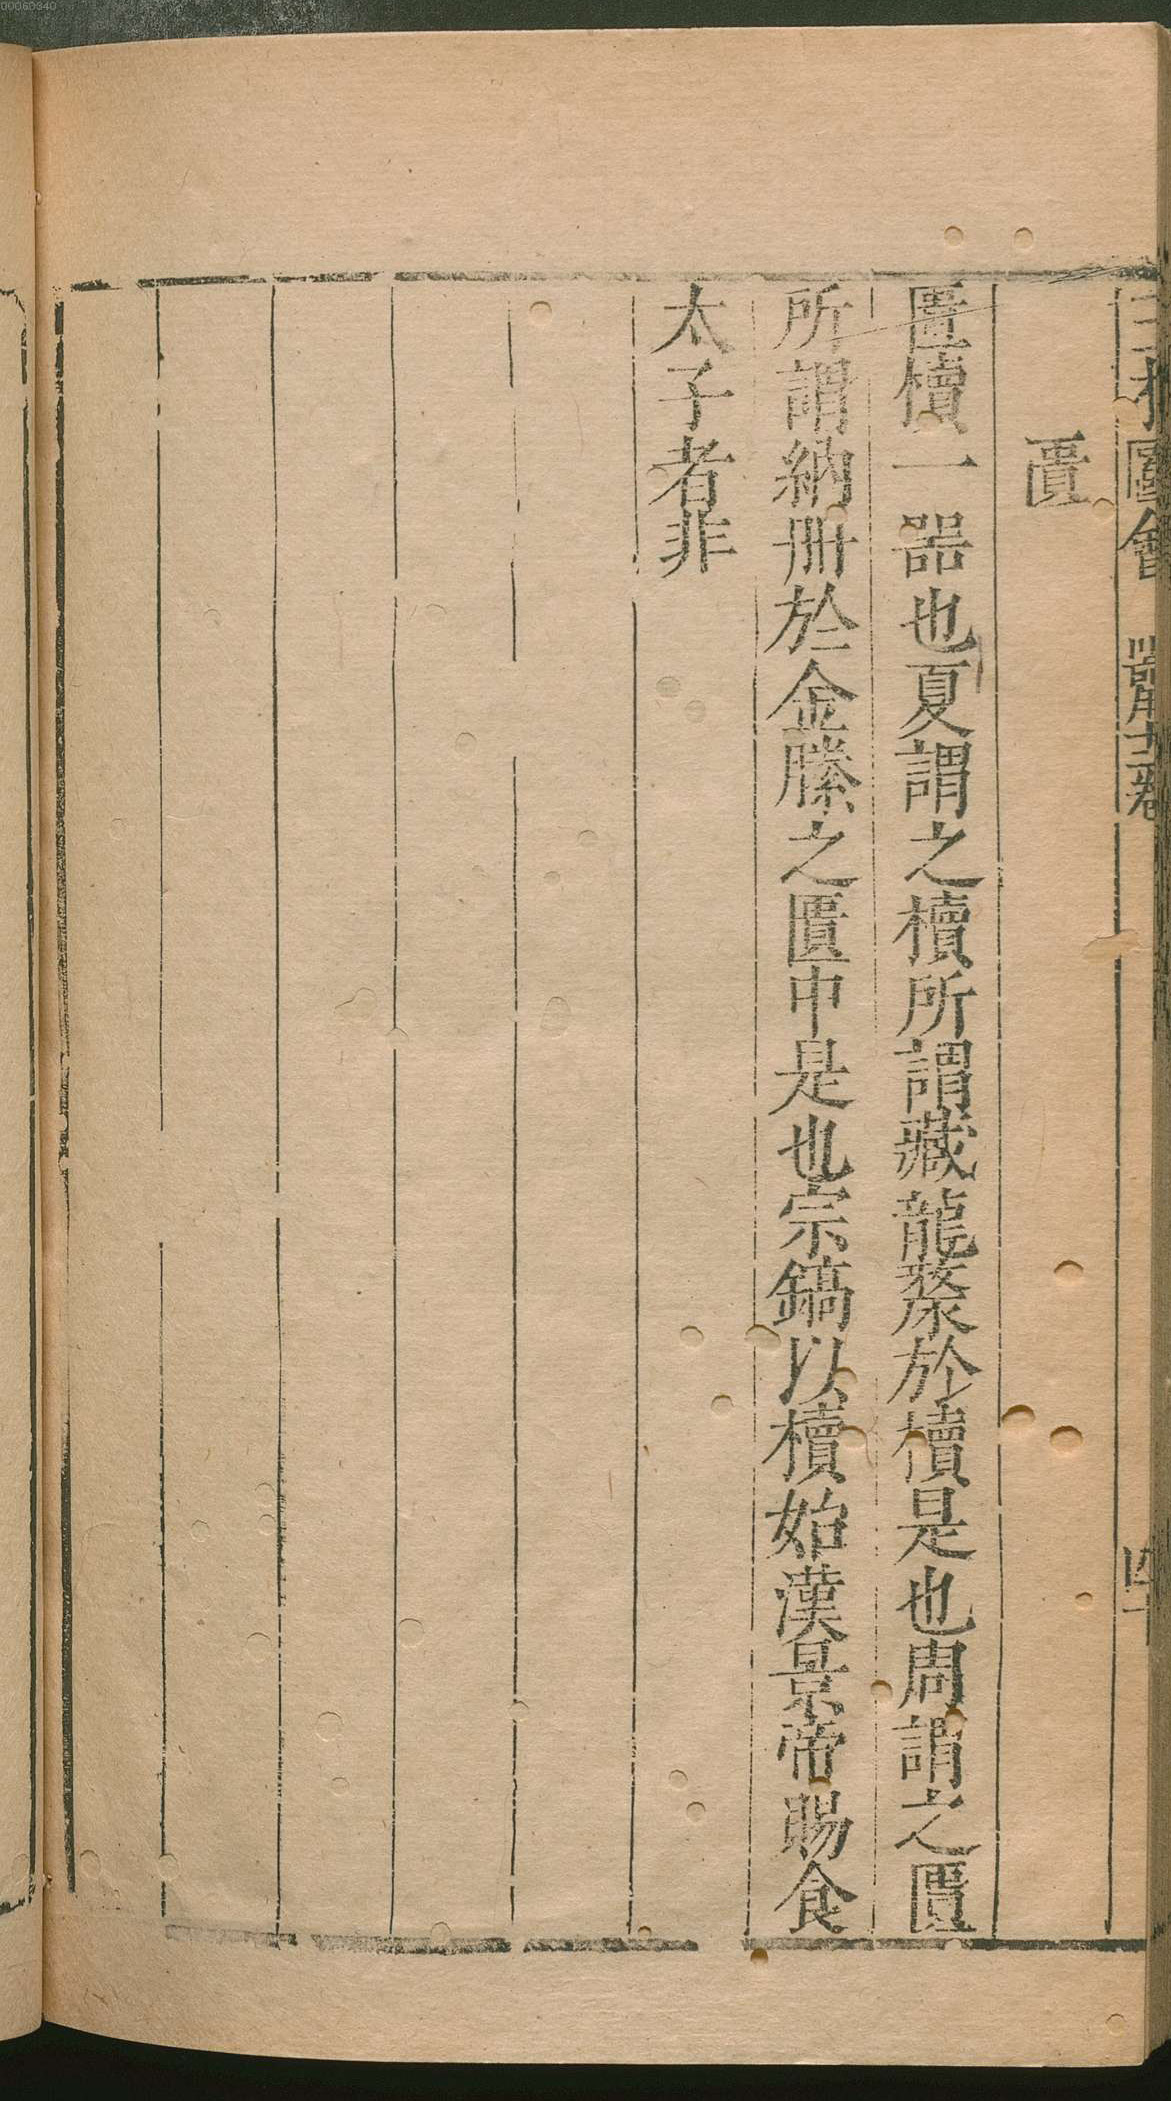 三才圖會 器用十二卷 四十
匱
匱櫝一器也夏謂之櫝所謂藏龍漦於櫝是也周謂之匱
所謂納册於金縢之匱中是也宗鎬以櫝始漢景帝賜食
太子者非
00060340